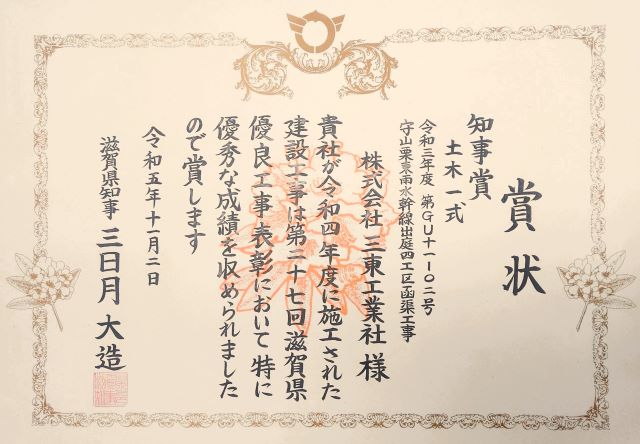 賞状
知事賞
土木一式
令和三年度 第GU十一-一〇二号
守山栗東雨水幹線出庭四工区函渠工事
株式会社三東工業社 様
貴社が令和四年度に施工された
建設工事は第二十七回滋賀県
優良工事表彰において特に
優秀な成績を収められました
ので賞します
令和五年十一月二日
滋賀県知事 三日月大造